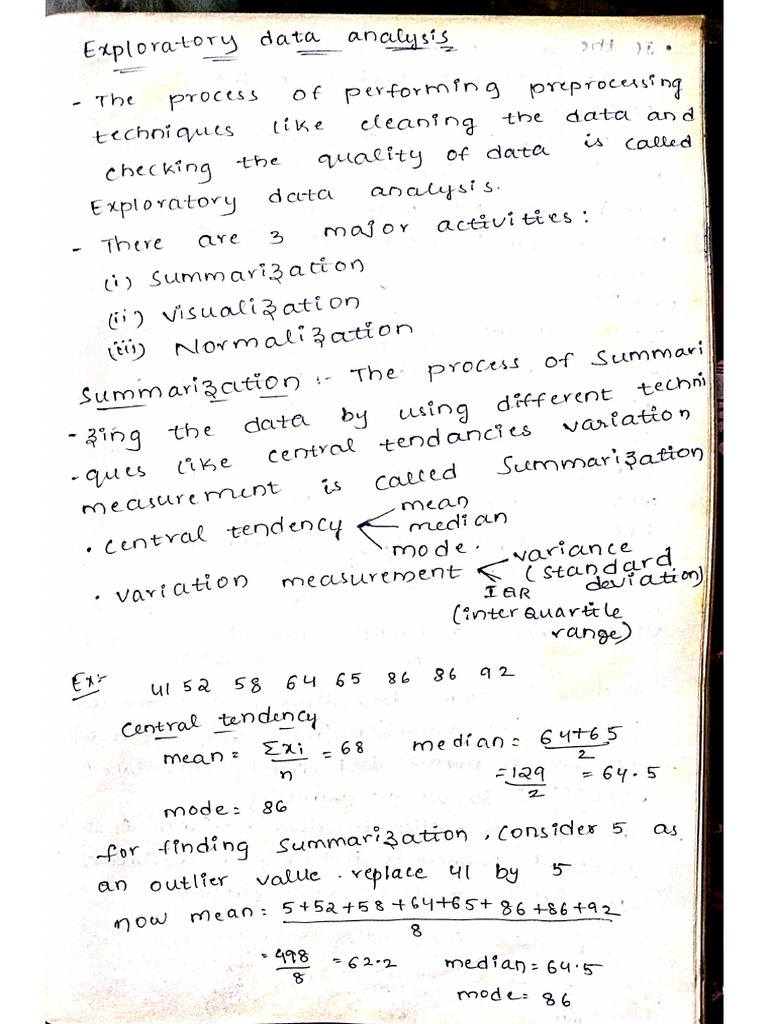 Exploratory data analysis
- The process of performing preprocessing
techniques like cleaning the data and
checking the quality of data is called
Exploratory data analysis.
- There are 3 major activities:
(i) Summarization
(ii) Visualization
(iii) Normalization
Summarization :- The process of Summari
-zing the data by using different techni
-ques like central tendancies variation
measurement is called Summarization
• central tendency
mean
median
mode.
• variation measurement
variance
(standard
deviation)
IQR
(inter Quartile
range)
Ex:-
41 52 58 64 65 86 86 92
Central tendency
mean = Σxi/n = 68 median = 64+65/2
= 129/2 = 64.5
mode = 86
for finding Summarization, Consider 5 as
an outlier value. replace 41 by 5
now mean = 5+52+58+64+65+86+86+92/8
= 498/8 = 62.2 median = 64.5
mode = 86